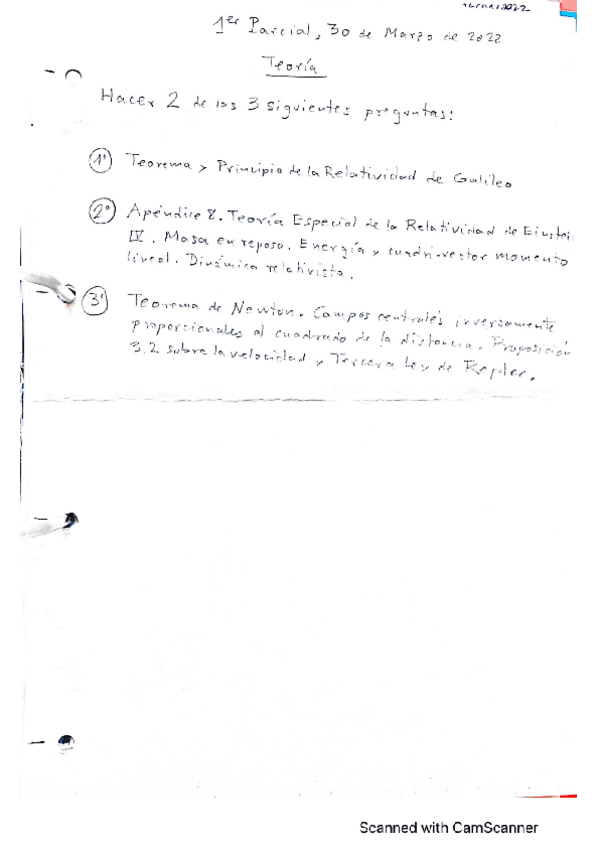 1er Parcial, 30 de Marzo de 2022
Teoría
Hacer 2 de las 3 siguientes preguntas:
1º Teorema y Principio de la Relatividad de Galileo
2º Apéndice 8. Teoría Especial de la Relatividad de Einstei
IV. Masa en reposo. Energía y cuadri-vector momento
lineal. Dinámica relativista.
3º Teorema de Newton. Campos centrales inversamente
proporcionales al cuadrado de la distancia. Proposición
3.2 sobre la velocidad y Tercera Ley de Kepler.
Scanned with CamScanner